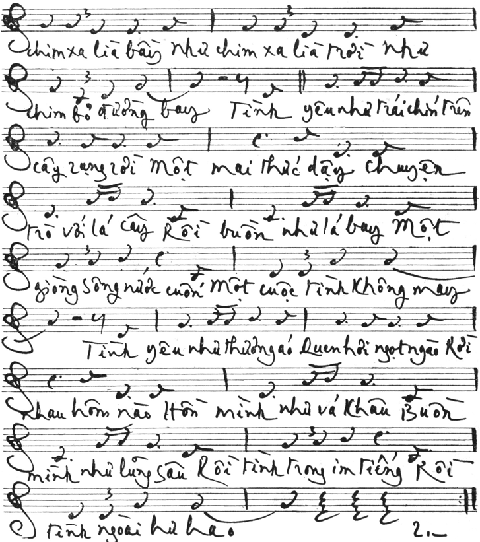 chim xa lìa bầy như chim xa lìa trời như
chim bỏ đường bay Tình yêu như trái chín trên
cây rụng rời Một mai thức dậy chuyện
trò với lá cây Rồi buồn như lá bay Một
giòng sông nước cuốn Một cuộc tình không may
Tình yêu như thương áo Quen hơi ngọt ngào Rời
nhau hôm nào Hồn mình như vá khâu Buồn
mình như lũng sâu Rồi tình trong im tiếng Rồi
tình ngoài hư hao. 2.